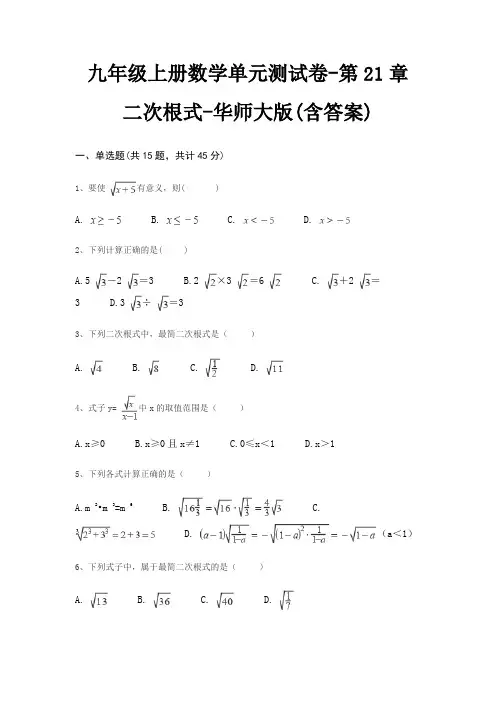 九年级上册数学单元测试卷-第21章
二次根式-华师大版(含答案)
一、单选题(共15题，共计45分)
1、要使 √(x+5) 有意义，则( )
A. x≥-5 B. x≤-5 C. x<-5 D. x>-5
2、下列计算正确的是( )
A.5 √3-2 √3=3 B.2 √2×3 √2=6 √2 C. √3+2 √3=
3 D.3 √3÷ √3=3
3、下列二次根式中，最简二次根式是（ ）
A. √4 B. √8 C. √(1/2) D. √11
4、式子y= √x/(x-1) 中x的取值范围是（ ）
A.x≥0 B.x≥0且x≠1 C.0≤x＜1 D.x＞1
5、下列各式计算正确的是（ ）
A.m ²•m ³=m ⁶ B. √(16 1/3)=√16·√(1/3)=4/3 √3 C.
∛(2³+3³)=2+3=5 D. (a-1)√(1/(1-a))=-√((1-a)²·1/(1-a))=-√(1-a)（a＜1）
6、下列式子中，属于最简二次根式的是（ ）
A. √13 B. √36 C. √40 D. √(1/7)